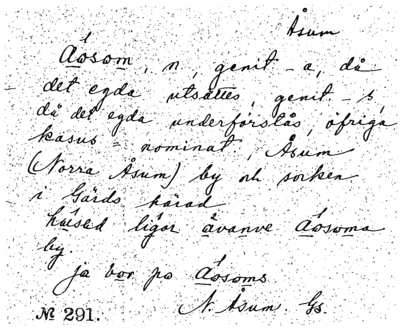 Åsum
Áosom, n, genit -a, då
det egda utsättes, genit. -s,
då det egda underförstås, öfriga
kasus = nominat, Åsum
(Norra Åsum) by och socken
i Gärds härad
húsed lígor åvanve Áosoma
by
ja bor po Áosoms
№ 291. N. Åsum. Gs.